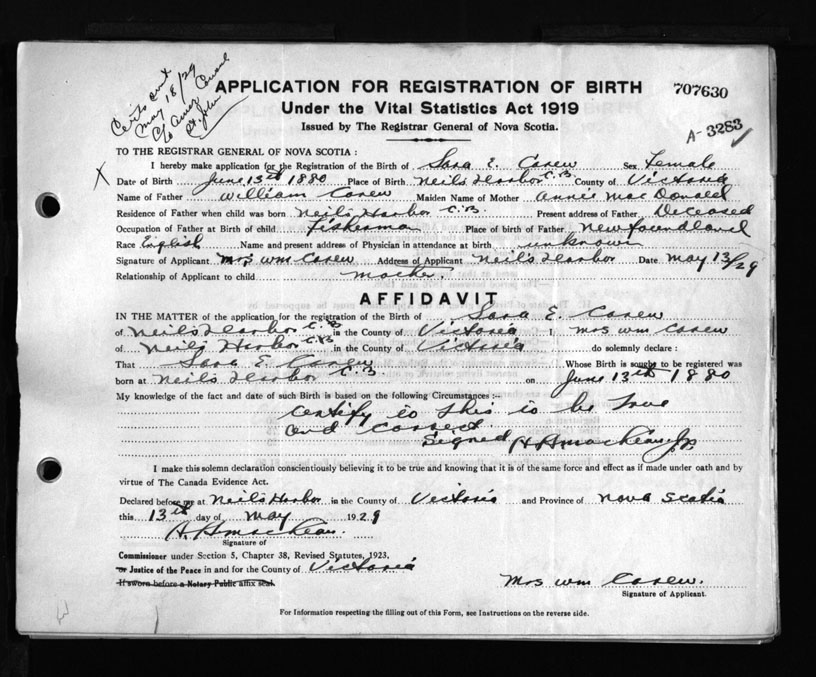 Certs sent
May 18/29
c/o
St. John
APPLICATION FOR REGISTRATION OF BIRTH
707630
Under the Vital Statistics Act 1919
Issued by The Registrar General of Nova Scotia.
A-3283 ✓
TO THE REGISTRAR GENERAL OF NOVA SCOTIA :
I hereby make application for the Registration of the Birth of Sara E. Carew Sex Female
X
Date of Birth June 13th 1880 Place of Birth Neils Harbor C.B. County of Victoria
Name of Father William Carew Maiden Name of Mother Annie Mac Donald
Residence of Father when child was born Neil's Harbor C.B. Present address of Father Deceased
Occupation of Father at Birth of child Fisherman Place of birth of Father Newfoundland
Race English Name and present address of Physician in attendance at birth unknown
Signature of Applicant Mrs Wm Carew Address of Applicant Neil's Harbor Date May 13/29
Relationship of Applicant to child Mother.
AFFIDAVIT
IN THE MATTER of the application for the registration of the Birth of Sara E. Carew
of Neil's Harbor C.B. in the County of Victoria I, Mrs Wm Carew
of Neil's Harbor C.B. in the County of Victoria do solemnly declare :
That Sara E. Carew Whose Birth is sought to be registered was
born at Neil's Harbor C.B. on June 13th 1880
My knowledge of the fact and date of such Birth is based on the following Circumstances :—
Certify to this to be True
and Correct.
Signed H. H. MacKean J.P.
I make this solemn declaration conscientiously believing it to be true and knowing that it is of the same force and effect as if made under oath and by
virtue of The Canada Evidence Act.
Declared before me at Neil's Harbor in the County of Victoria and Province of Nova Scotia
this 13th day of May 1929
H. H. MacKean.
Signature of
Commissioner under Section 5, Chapter 38, Revised Statutes, 1923.
or Justice of the Peace in and for the County of Victoria
If sworn before a Notary Public affix seal.
Mrs Wm Carew.
Signature of Applicant.
For Information respecting the filling out of this Form, see Instructions on the reverse side.